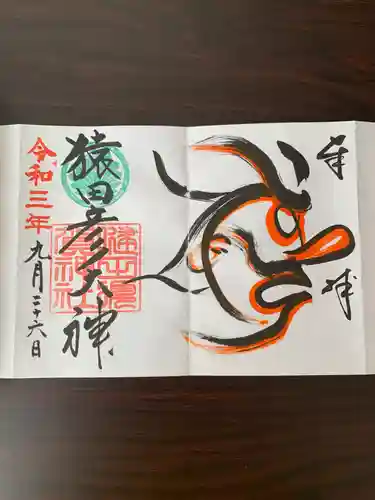 奉
拝
猿田彦大神
令和三年
九月二十六日